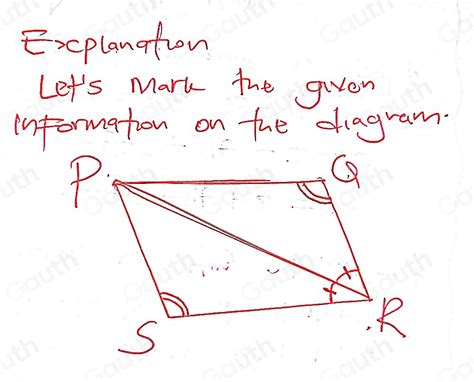 Explanation
Let's Mark the given
information on the diagram.
P
Q
S
R
Gauth